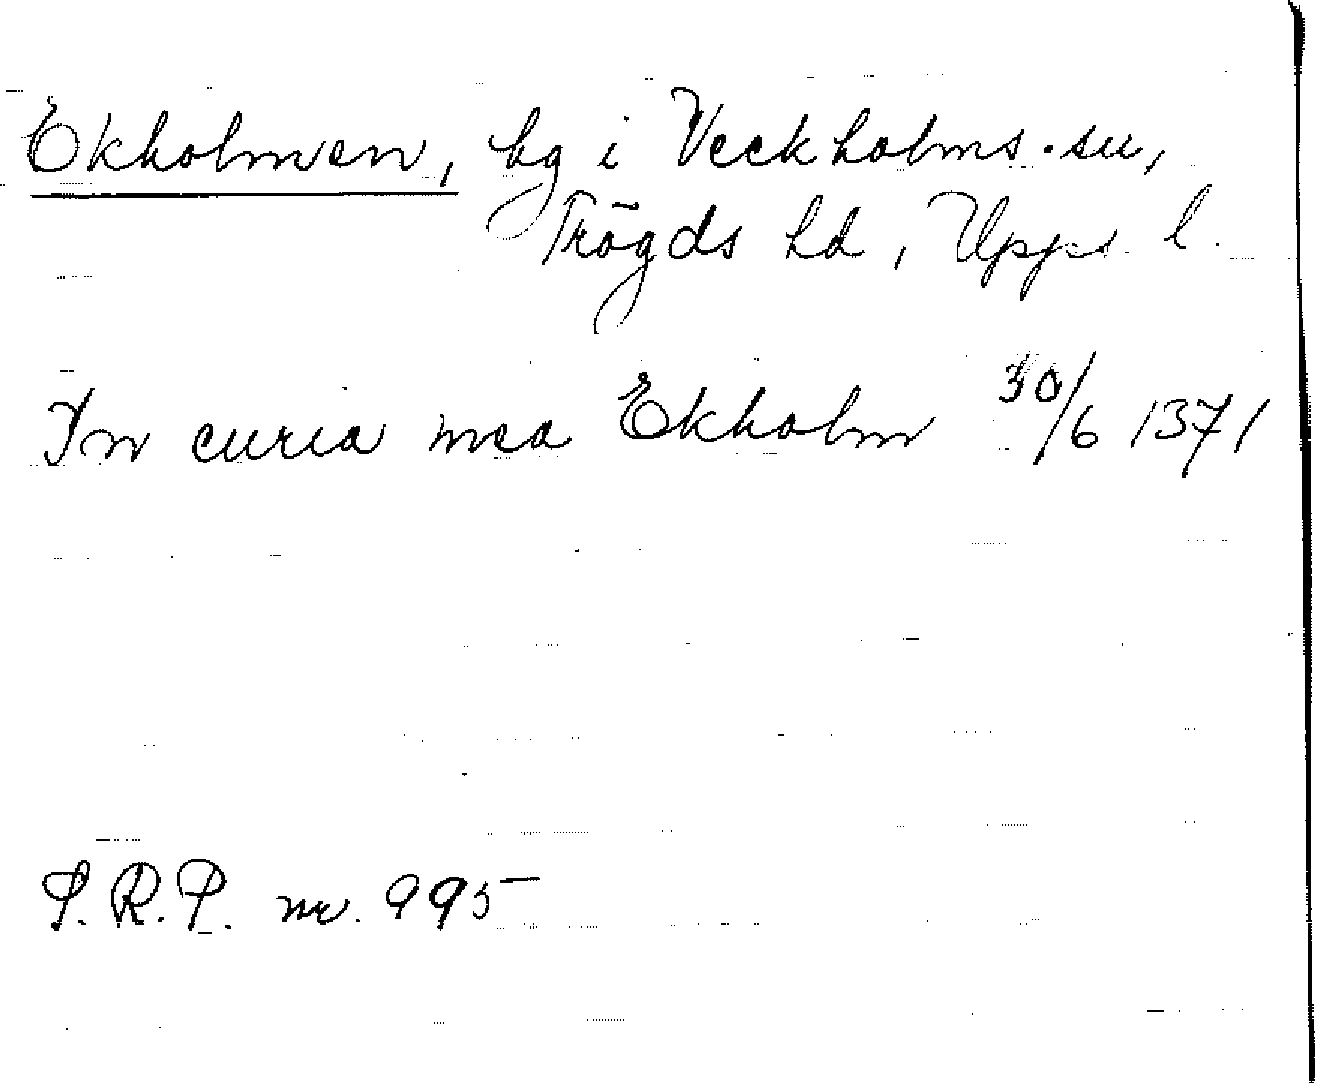 Ekholmen, hg i Veckholms sn,
Trögds hd, Upps l.
In curia mea Ekholm 30/6 1371
S.R.P. nr. 995